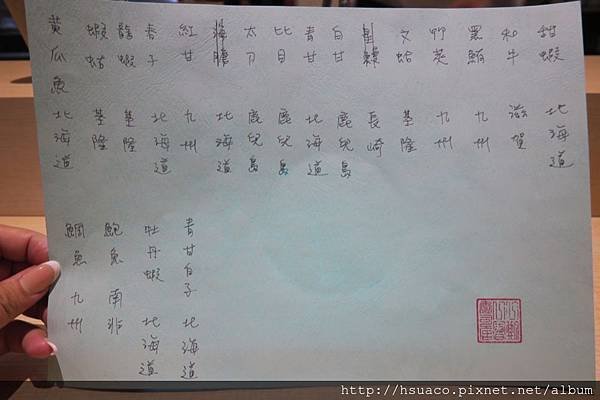 甜蝦 北海道
和牛 滋賀
黑鮪 九州
竹莢 九州
文蛤 基隆
長崎
白甘 鹿兒島
青甘 北海道
比目 鹿兒島
太刀 鹿兒島
海膽 北海道
紅甘 九州
春子 北海道
龍蝦 基隆
蝦蛄 基隆
黃瓜魚 北海道
青甘白子 北海道
牡丹蝦 北海道
鮑魚 南非
鯛魚 九州
http://hsuaco.pixnet.net/album